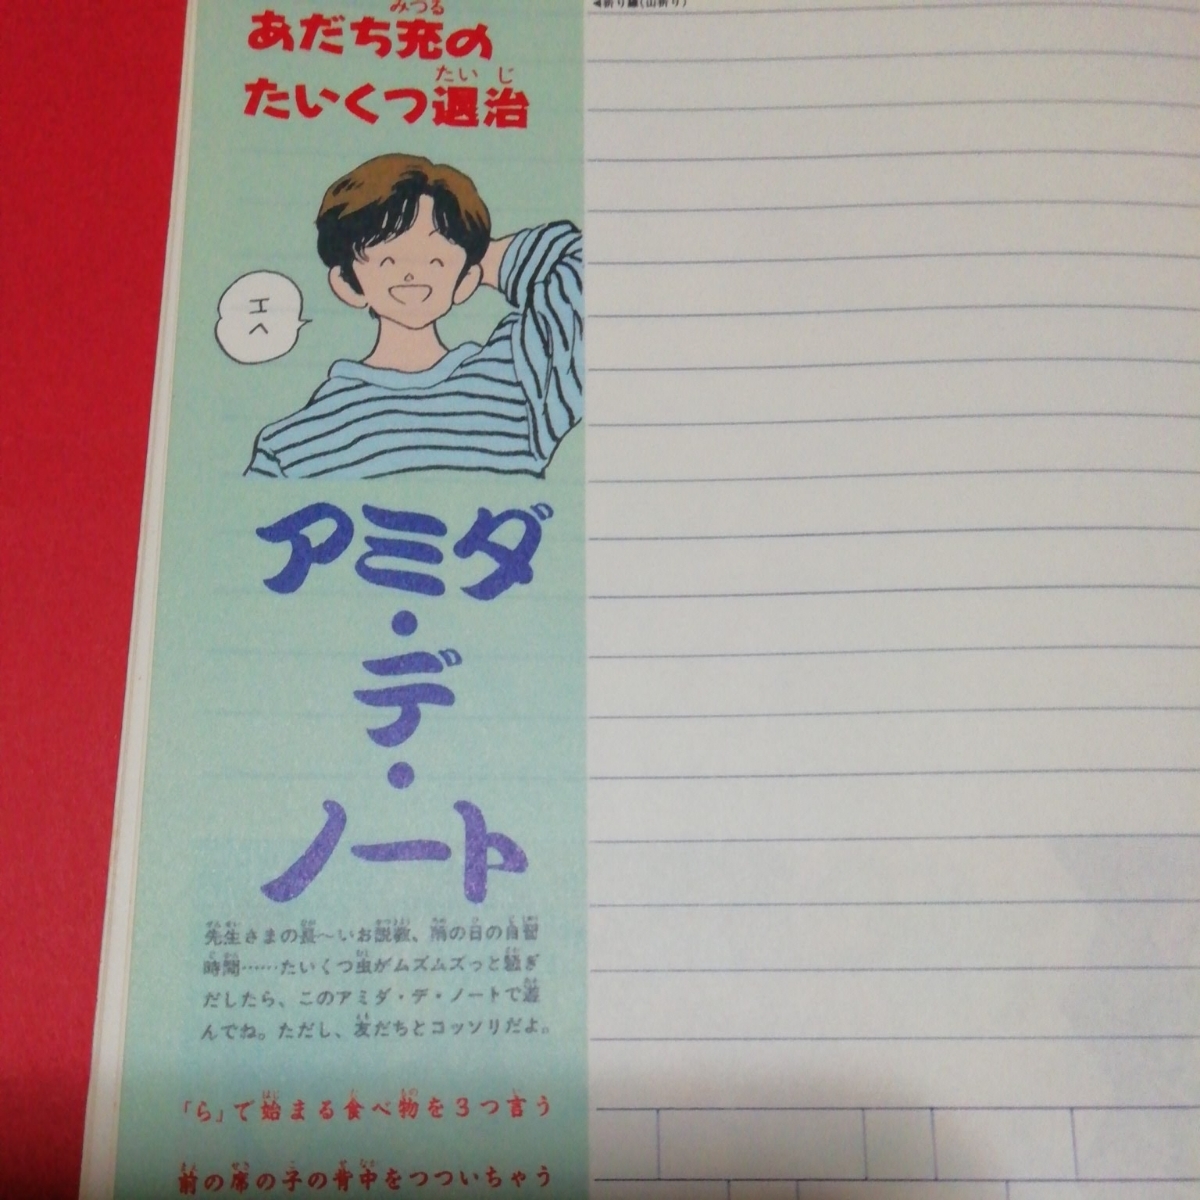 ◀折り線(山折り)
あだち充のみつる
たいくつ退治たいじ
エヘ
アミダ
・
デ
・
ノート
先生さまの長〜いお説教、雨の日の自習
時間……たいくつ虫がムズムズっと騒ぎ
だしたら、このアミダ・デ・ノートで遊
んでね。ただし、友だちとコッソリだよ。
「ら」で始まる食べ物を3つ言う
前の席の子の背中をつついちゃう